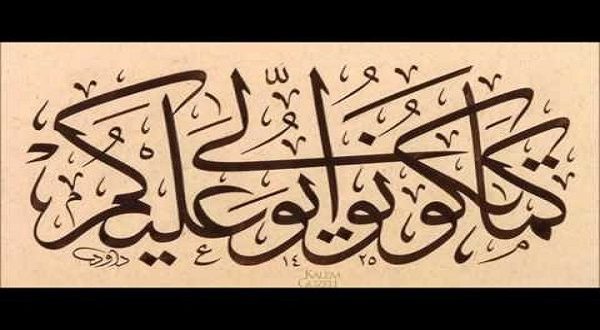 كما تكونوا يُوَلّى عليكم
داود ١٤٢٥
KALEM
GÜZELİ